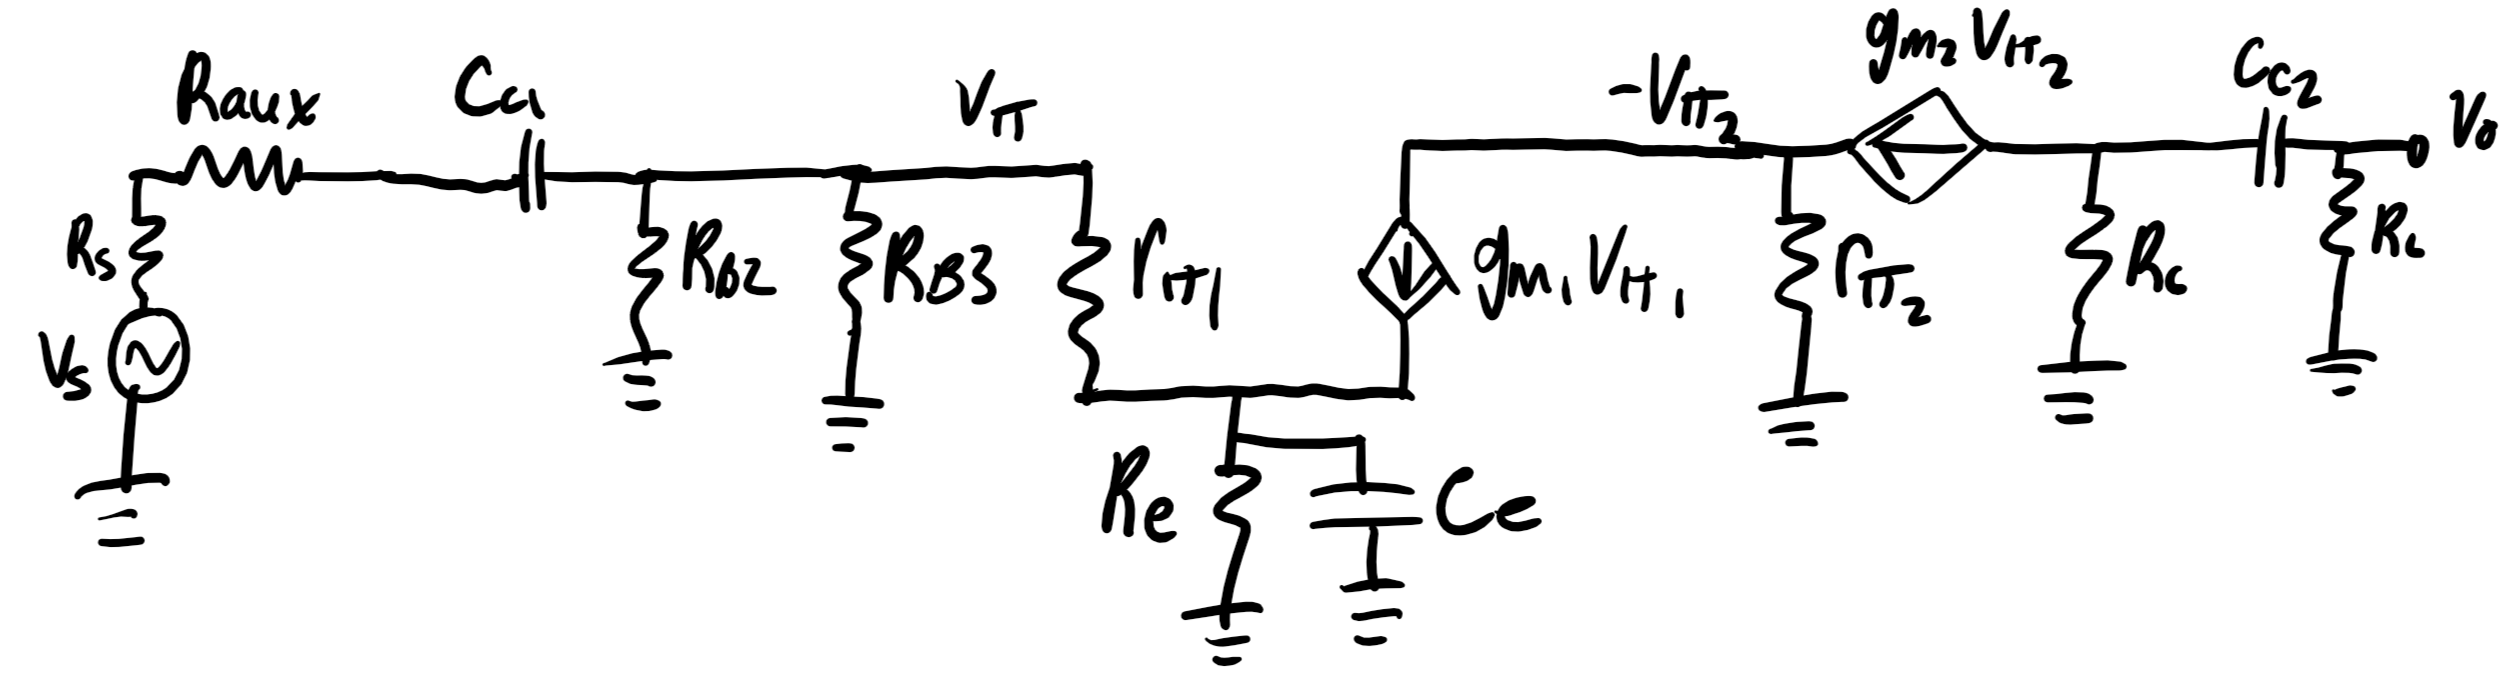 Raux
Cc1
Vπ
-Vπ2
gm2 Vπ2
Cc2
Vo
Rs
RB2
RB3
rπ1
gm1 Vπ1
rπ2
Rc
RL
Vs
Re
Ce